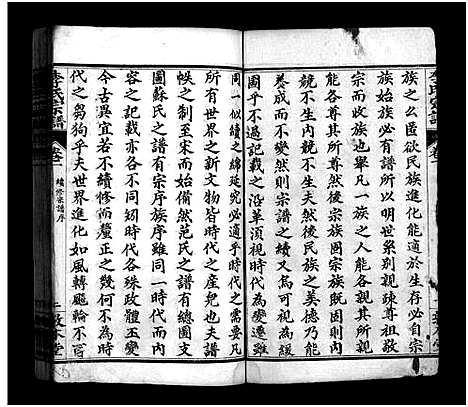 族之么匿欲民族進化能適於生存自必自宗
族始族必有譜所以明世系别親疎尊祖敬
宗而收族也舉凡一族之人能各親其所親
能各尊其所尊然後宗族固宗族既固則內
競不生內競不生夫然後民族之美德乃能
養成而不變然則宗譜之續又焉可視為緩
圖乎不過記載之沿革須視時代為變遷雖
同一似續之綿延究必適乎時代之需要凡
所有世界之新文物皆時代之產兒也夫譜
帙之制至宋而始備然范氏之譜有總圖支
圖蘇氏之譜有宗序族序雖同一時代而內
容之記載亦各不同矧時代各殊政體互變
今古異宜若不續修而釐正之幾何不為時
代之芻狗乎夫世界進化如風轉颷輪不可
李氏宗譜
卷一
續修宗譜序